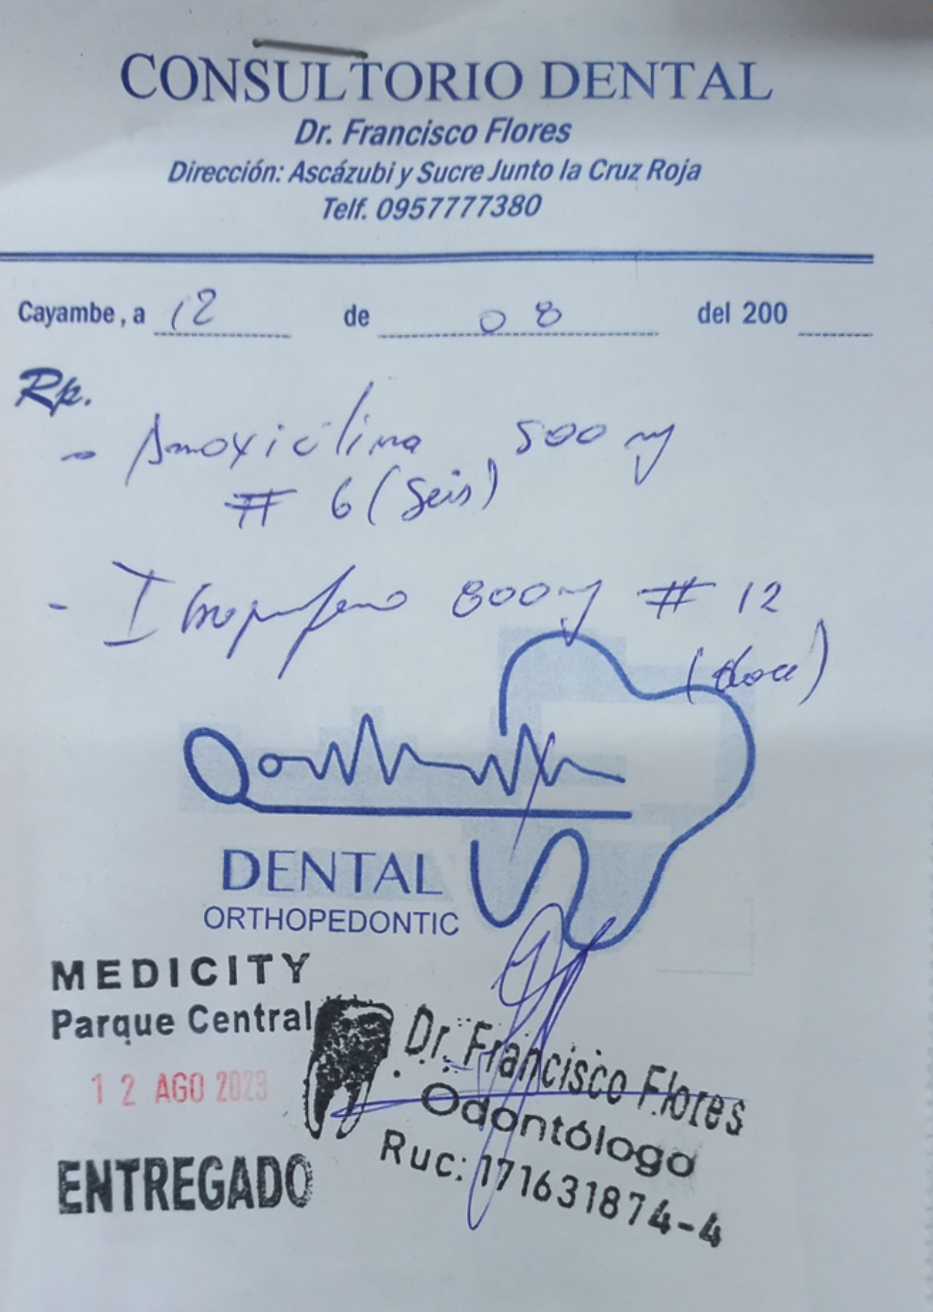 CONSULTORIO DENTAL
Dr. Francisco Flores
Dirección: Ascázubi y Sucre Junto la Cruz Roja
Telf. 0957777380
Cayambe, a 12 de 08 del 200
Rp.
- Amoxicilina 500 mg
# 6 (Seis)
- Ibuprofeno 800 mg # 12
(doce)
DENTAL
ORTHOPEDONTIC
MEDICITY
Parque Central
12 AGO 2023
ENTREGADO
Dr. Francisco Flores
Odontólogo
Ruc: 171631874-4